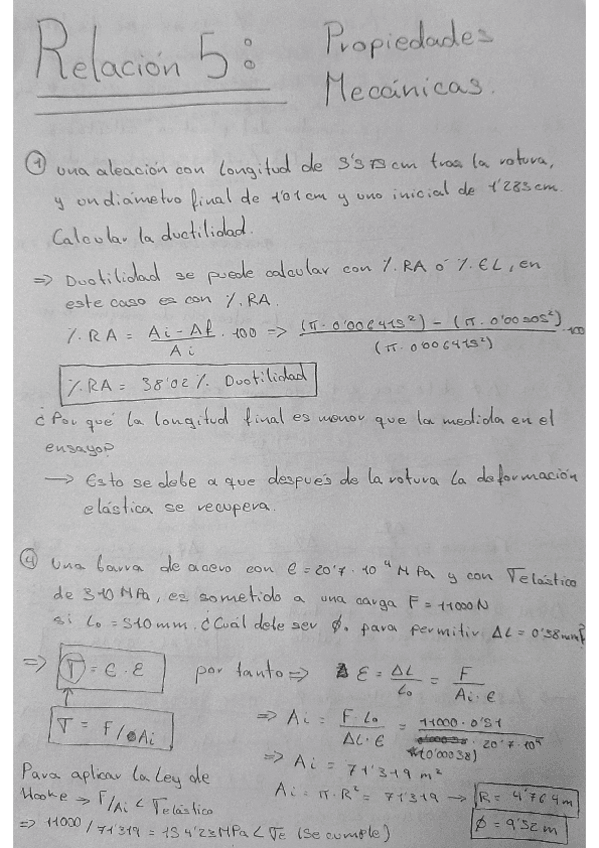 Relación 5: Propiedades
Mecánicas.
① una aleación con longitud de 3'373 cm tras la rotura,
y un diámetro final de 1'01 cm y uno inicial de 1'283 cm.
Calcular la ductilidad.
⇒ Ductilidad se puede calcular con %RA ó %EL, en
este caso es con %RA.
%RA = (Ai - Af)/Ai · 100 ⇒ ((π · 0'006415²) - (π · 0'00505²))/(π · 0'006415²) · 100
%RA = 38'02 % Ductilidad
¿Por qué la longitud final es menor que la medida en el
ensayo?
→ Esto se debe a que después de la rotura la deformación
elástica se recupera.
④ Una barra de acero con E = 20'7 · 10⁴ MPa y con σelástico
de 310 MPa, es sometido a una carga F = 11000 N
si L₀ = 510 mm. ¿Cuál debe ser ϕ₀ para permitir ΔL = 0'38 mm?
⇒ σ = E · ε por tanto ⇒ ε = ΔL/L₀ = F/(Ai · E)
σ = F/Ai
⇒ Ai = (F · L₀)/(ΔL · E) = (11000 · 0'51)/((0'00038) · 20'7 · 10⁴)
⇒ Ai = 71'319 m²
Ai = π · R² = 71'319 → R = 4'764 m
ϕ = 9'52 m
Para aplicar la Ley de
Hooke → F/Ai < σelástico
⇒ 11000/71'319 = 154'23 MPa < σe (se cumple)